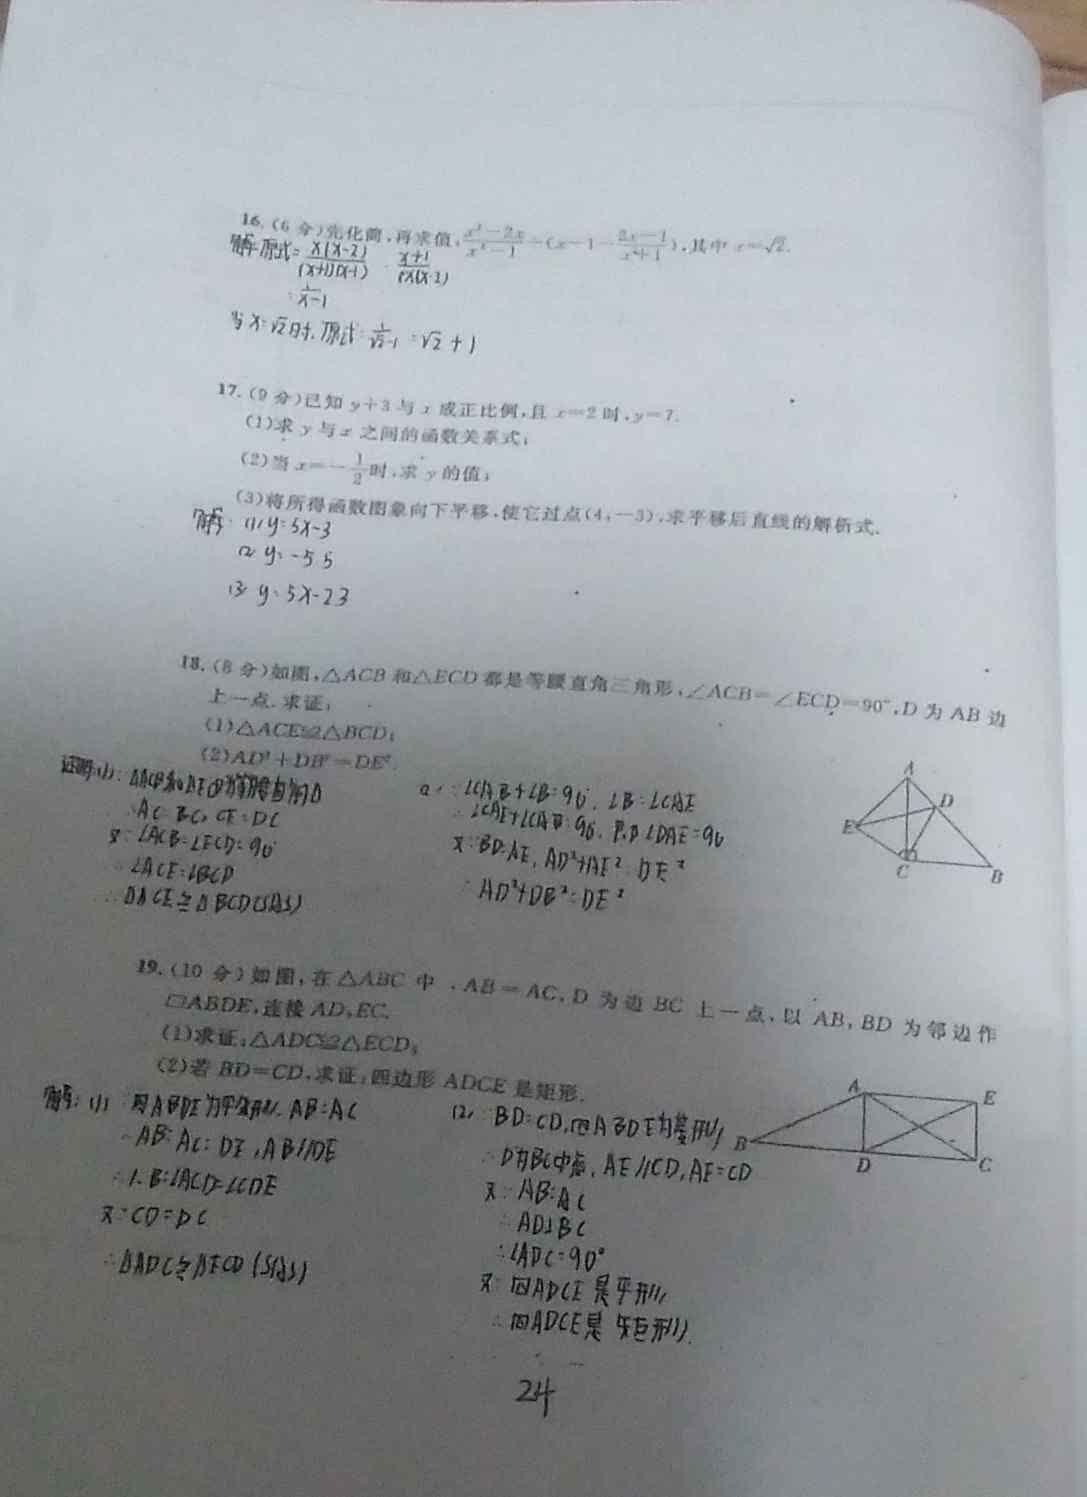 16.(6 分)先化简,再求值:\frac{x²-2x}{x²-1}÷(x-1-\frac{2x-1}{x+1}),其中 x=√2.
解:原式=\frac{x(x-2)}{(x+1)(x-1)}·\frac{x+1}{x(x-2)}
=\frac{1}{x-1}
当x=√2时,原式=\frac{1}{√2-1}=√2+1
17.(9 分)已知 y+3 与 x 成正比例,且 x=2 时,y=7.
(1)求 y 与 x 之间的函数关系式;
(2)当 x=-\frac{1}{2}时,求 y 的值;
(3)将所得函数图象向下平移,使它过点(4,-3),求平移后直线的解析式.
解: (1) y=5x-3
(2) y=-5.5
(3) y=5x-23
18.(8 分)如图,△ACB 和△ECD 都是等腰直角三角形,∠ACB=∠ECD=90°,D 为 AB 边
上一点.求证:
(1)△ACE≌△BCD;
(2)AD²+DB²=DE².
证明:(1)∵△ACB和△ECD为等腰直角△
∴AC=BC,CE=DC
又∵∠ACB=∠ECD=90°
∴∠ACE=∠BCD
∴△ACE≌△BCD(SAS)
(2)∵∠CAB+∠B=90°,∠B=∠CAE
∴∠CAE+∠CAB=90°,即∠DAE=90°
又∵BD=AE,AD²+AE²=DE²
∴AD²+DB²=DE²
A
D
E
C
B
19.(10 分)如图,在△ABC 中,AB=AC,D 为边 BC 上一点,以 AB,BD 为邻边作
▱ABDE,连接 AD,EC.
(1)求证:△ADC≌△ECD;
(2)若 BD=CD,求证:四边形 ADCE 是矩形.
解:(1)∵四ABDE为平行四形,AB=AC
∴AB=AC=DE,AB//DE
∴∠B=∠ACD=∠CDE
又∵CD=DC
∴△ADC≌△ECD(SAS)
(2)∵BD=CD,四ABDE为
∴D为BC中点,AE//CD,AE=CD
又∵AB=AC
∴AD⊥BC
∴∠ADC=90°
又∵四ADCE是平形
∴四ADCE是矩形.
A
E
B
D
C
24